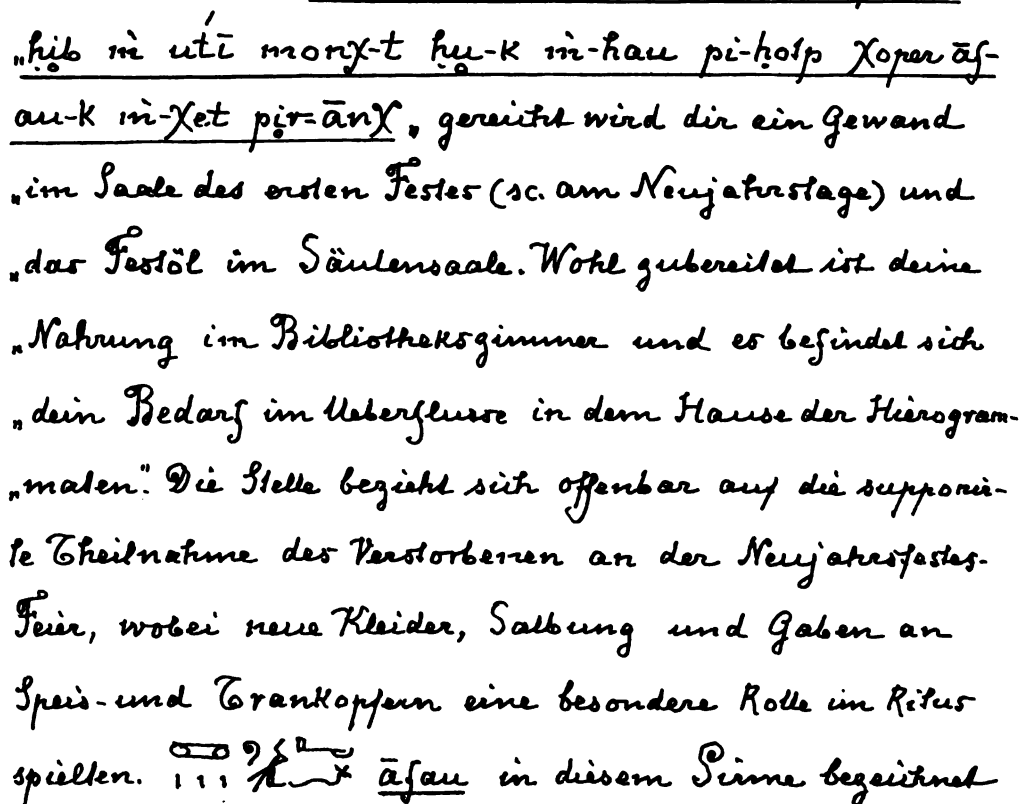 „ḥib m̀ utí monχ-t ḥu-k m̀-hau pi-ḥosp χoper āf-
au-k m̀-χet pir-ānχ„ gereicht wird dir ein Gewand
„im Saale des ersten Festes (sc. am Neujahrstage) und
„das Festöl im Säulensaale. Wohl zubereitet ist deine
„Nahrung im Bibliothekszimmer und es befindet sich
„dein Bedarf im Ueberflusse in dem Hause der Hierogram-
„maten.“ Die Stelle bezieht sich offenbar auf die supponir-
te Theilnahme des Verstorbenen an der Neujahrsfestes-
Feier, wobei neue Kleider, Salbung und Gaben an
Speis- und Trankopfern eine besondere Rolle im Ritus
spielten. āfau in diesem Sinne bezeichnet